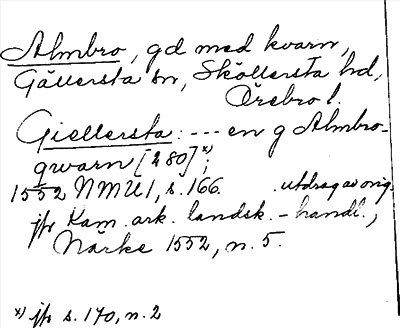 Almbro, gd med kvarn,
Gällersta sn, Sköllersta hd,
Örebro l.
Giellersta: --- en g Almbro-
qwarn [280]x);
1552 NMU1, s. 166. utdrag av orig.
jfr Kam. ark. landsk.-handl.,
Närke 1552, n. 5.
x) jfr s. 170, n. 2